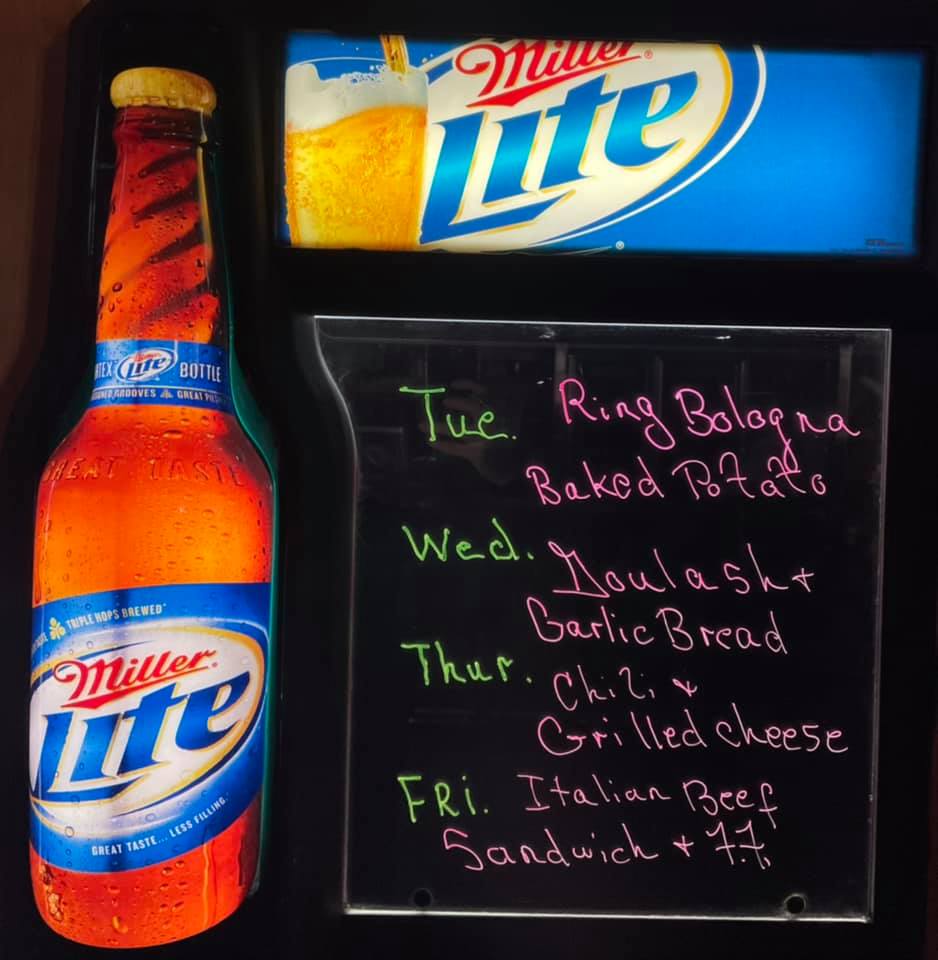 Miller
Lite
RTEX Lite BOTTLE
GROOVES GREAT
GREAT TASTE
TRIPLE HOPS BREWED
Miller
Lite
GREAT TASTE... LESS FILLING.
Tue. Ring Bologna
Baked Potato
Wed. Goulash +
Garlic Bread
Thur. Chili +
Grilled cheese
FRi. Italian Beef
Sandwich + F.F.